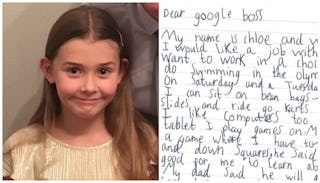 Dear google boss
My name is chloe and w
I would like a job with
Want to work in a choc
do swimming in the olym
On Saturday and a Wed
I can sit on bean bags
slides and ride go karts
I like computers too
tablet I play games on. M
a game where I have to
and down Squares, he Said
good for me to learn ab
My dad Said he will g